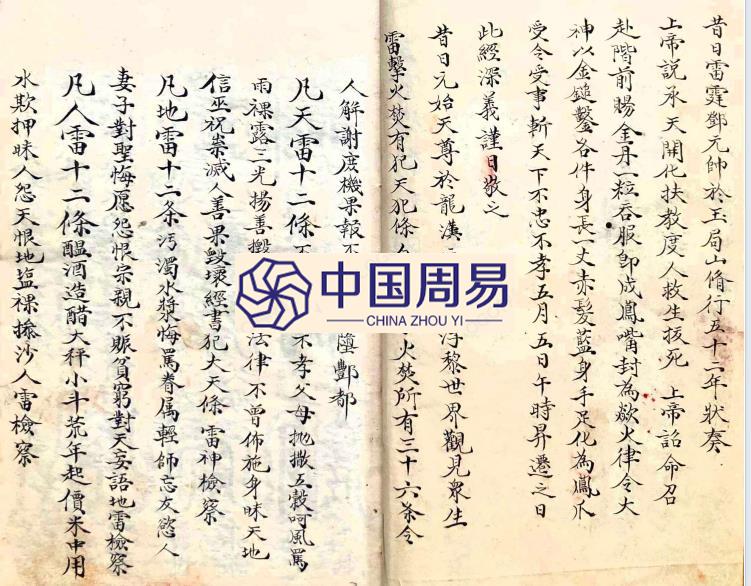 昔日雷霆鄧元帥於玉局山脩行五十二年狀奏
上帝説承天開化扶教度人救生拔死 上帝詔命召
赴階前賜金丹一粒吞服即成鳳嘴封為歘火律令大
神以金鎚鑿各件身長一丈赤髮藍身手足化為鳳爪
受令受事斬天下不忠不孝五月五日午時昇遷之日
此經深義謹日敬之
昔日元始天尊於龍漢 黎世界觀見衆生
雷擊火焚有犯天犯條 火焚所有三十六条令
人解謝度機果報不 酆都
凡天雷十二條不 不孝父母抛撒五穀呵風罵
雨裸露三光揚善 法律不曾佈施身昧天地
信巫祝祟滅人善果毀壞經書犯大天條 雷神檢察
凡地雷十二条汚濁水漿悔罵眷属輕師忘友慾人
妻子對聖悔愿怨恨宗親不賑貧窮對天妄語地雷檢察
凡人雷十二條醖酒造醋大秤小斗荒年起價米中用
水欺押昧人怨天恨地盐裸搽沙人雷檢察
中国周易
CHINA ZHOU YI